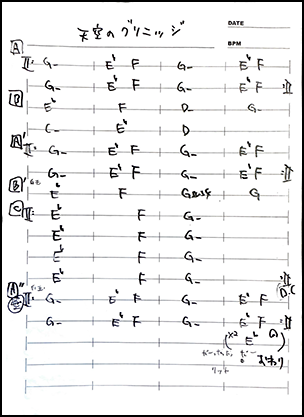 天空のグリニッジ
DATE
BPM
A
G- E♭ F G- E♭ F
G- E♭ F G- E♭ F
B
E♭ F D- G-
C- E♭ D
A'
G- E♭ F G- E♭ F
G- E♭ F G- E♭ F
B'
E♭ F Gsus4 G
C
E♭ F G-
E♭ F G-
E♭ F G-
E♭ F G-
D.C
A''
G- E♭ F G- E♭ F
G- E♭ F G- E♭ F
(x2 E♭ G)
おわり